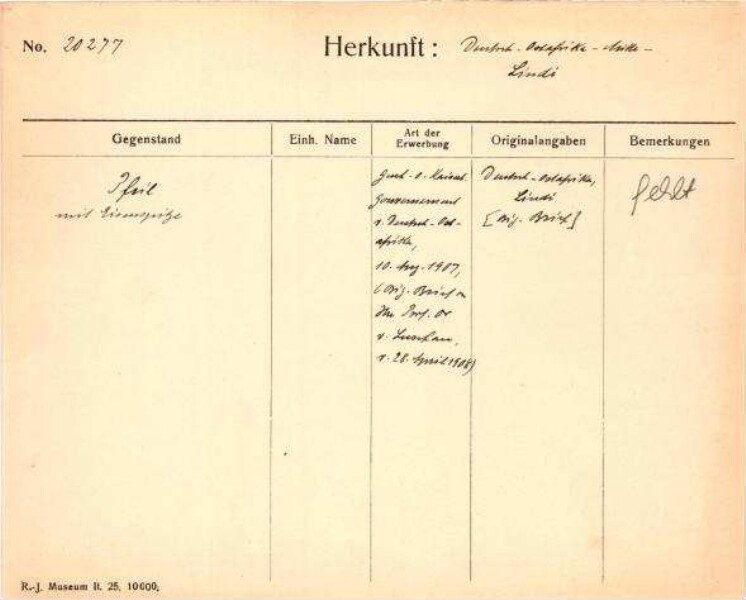 No. 20277
Herkunft: Deutsch-Ostafrika-
Lindi
Gegenstand
Einh. Name
Art der
Erwerbung
Originalangaben
Bemerkungen
Pfeil
mit Eisenspitze
Gesch. d. Kaiserl.
Gouvernement
v. Deutsch-Ost-
afrika,
10. Aug. 1907,
(Orig. Brief v.
Prof. Dr
v. Luschan,
v. 28. April 1908)
Deutsch-Ostafrika,
Lindi
[Orig. Brief]
fehlt
R.-J. Museum II. 25. 10000.